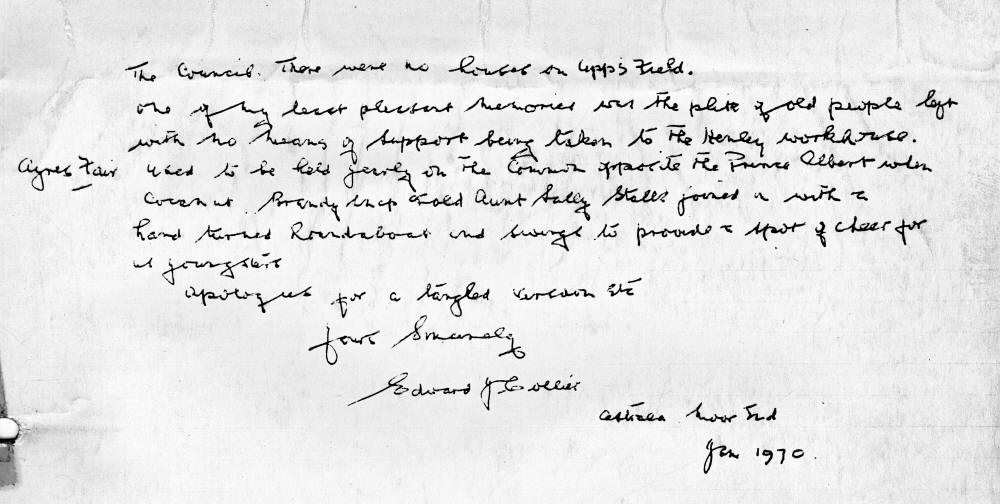 The Council. There were no houses on Upps Field.
One of my least pleasant memories was the plite of old people left
with no means of support being taken to the Henley workhouse.
Agnes Fair used to be held yearly on the Common opposite the Prince Albert when
Coconut Brandy Snap and old Aunt Sally Stalls joined in with a
hand turned Roundabout and swings to provide a spot of cheer for
us youngsters
apologies for a tangled version etc
yours Sincerely
Edward J Collier
Moor End
Jan 1970.